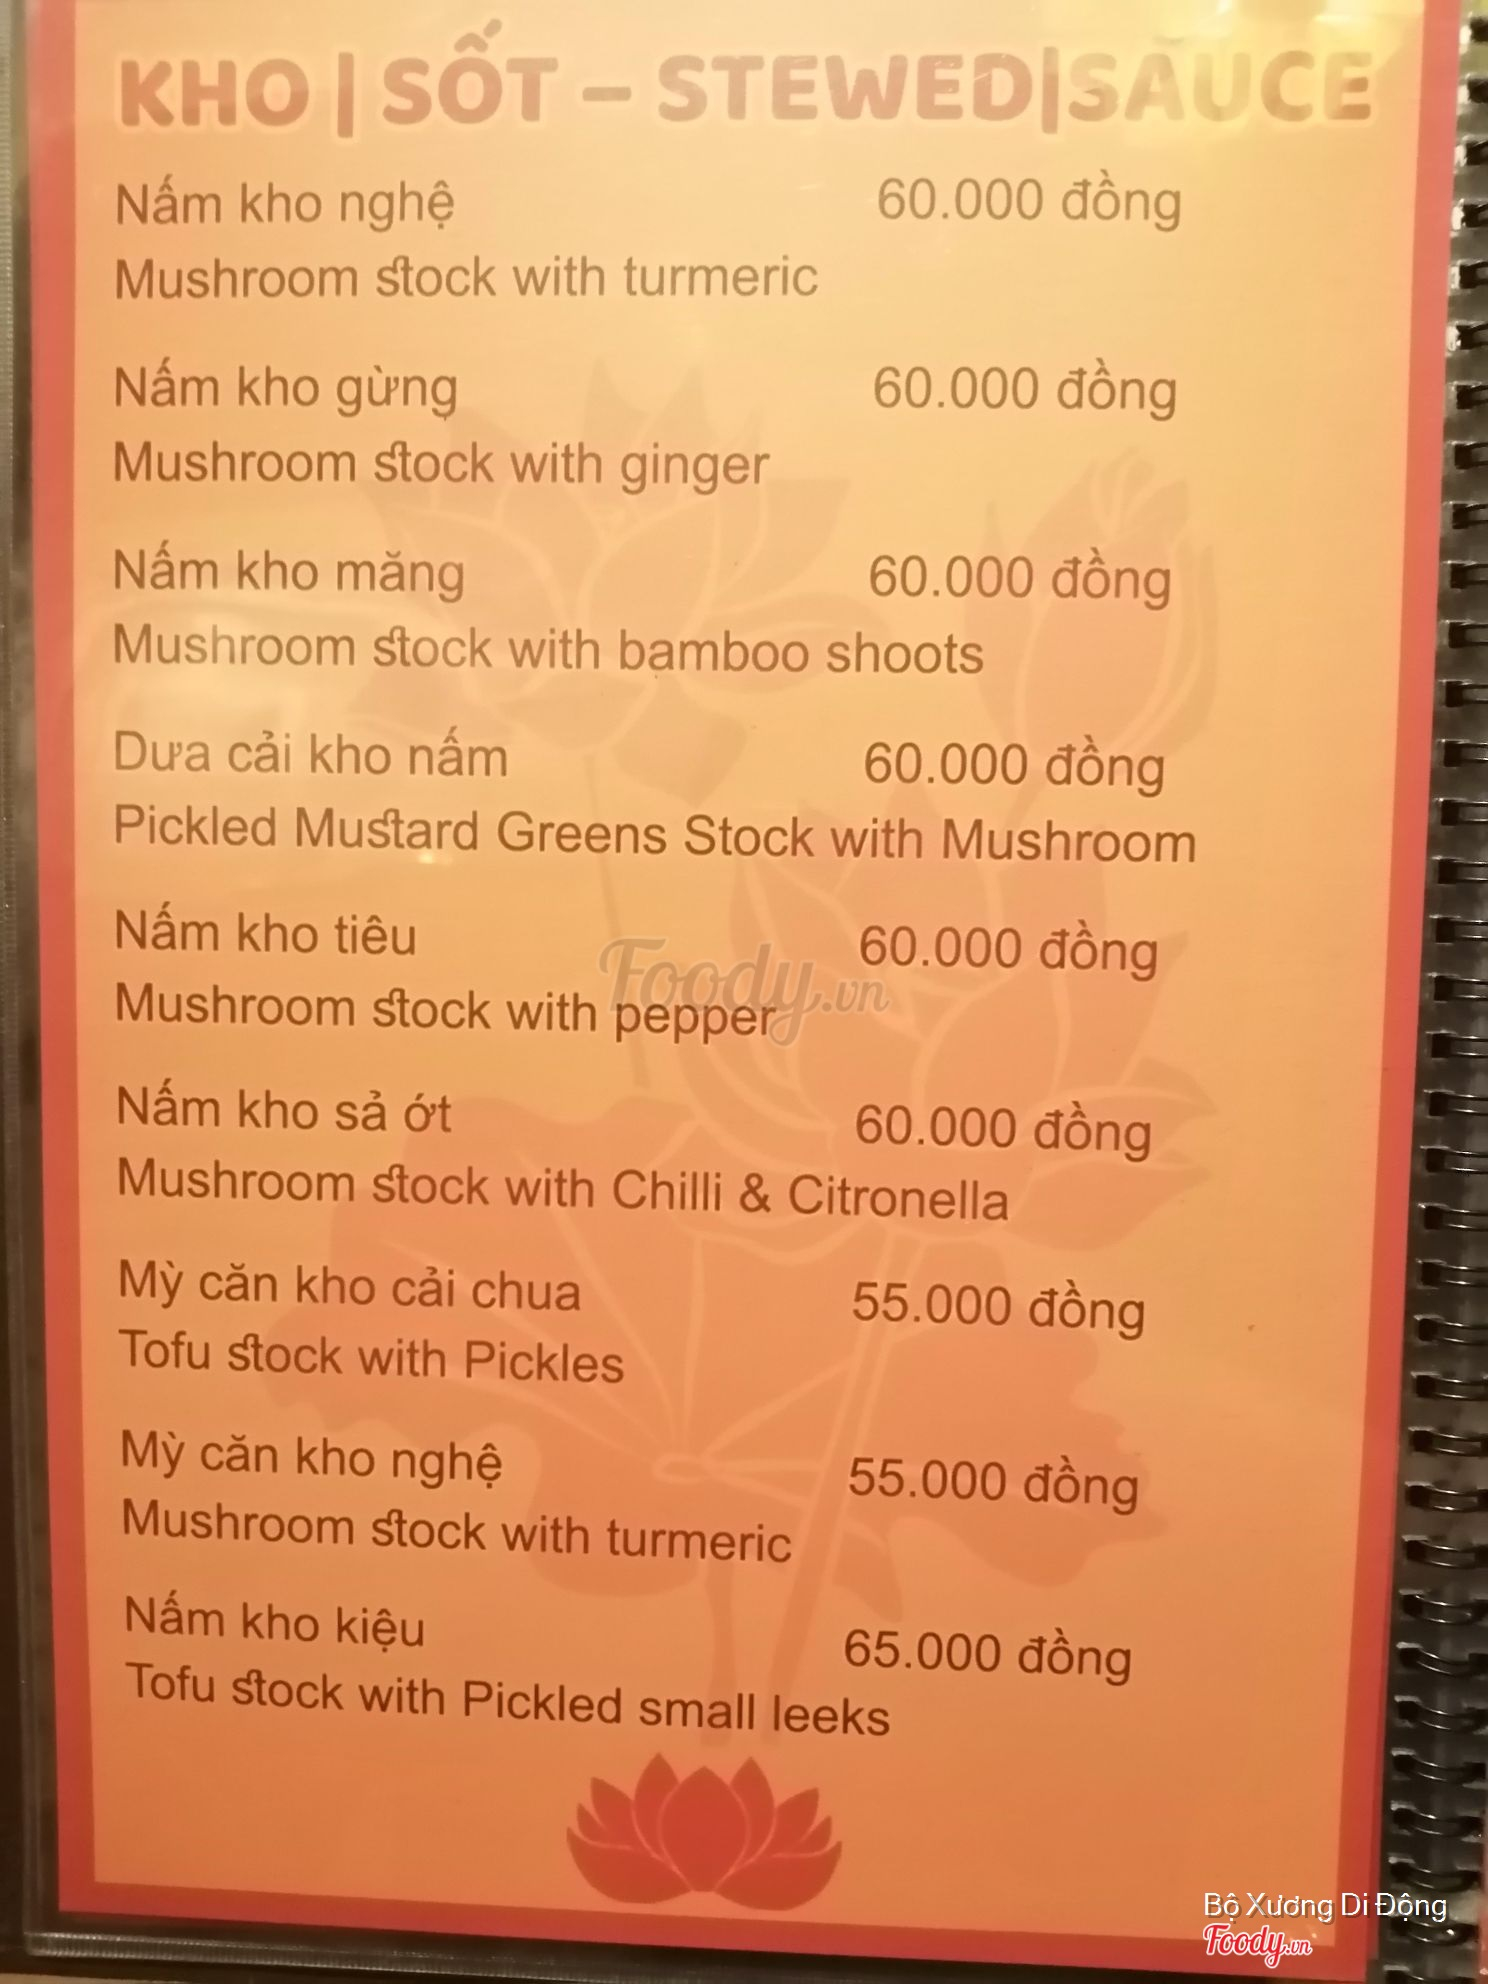 KHO | SỐT – STEWED|SAUCE
Nấm kho nghệ 60.000 đồng
Mushroom stock with turmeric
Nấm kho gừng 60.000 đồng
Mushroom stock with ginger
Nấm kho măng 60.000 đồng
Mushroom stock with bamboo shoots
Dưa cải kho nấm 60.000 đồng
Pickled Mustard Greens Stock with Mushroom
Nấm kho tiêu 60.000 đồng
Foody.vn
Mushroom stock with pepper
Nấm kho sả ớt 60.000 đồng
Mushroom stock with Chilli & Citronella
Mỳ căn kho cải chua 55.000 đồng
Tofu stock with Pickles
Mỳ căn kho nghệ 55.000 đồng
Mushroom stock with turmeric
Nấm kho kiệu 65.000 đồng
Tofu stock with Pickled small leeks
Bộ Xương Di Động
Foody.vn